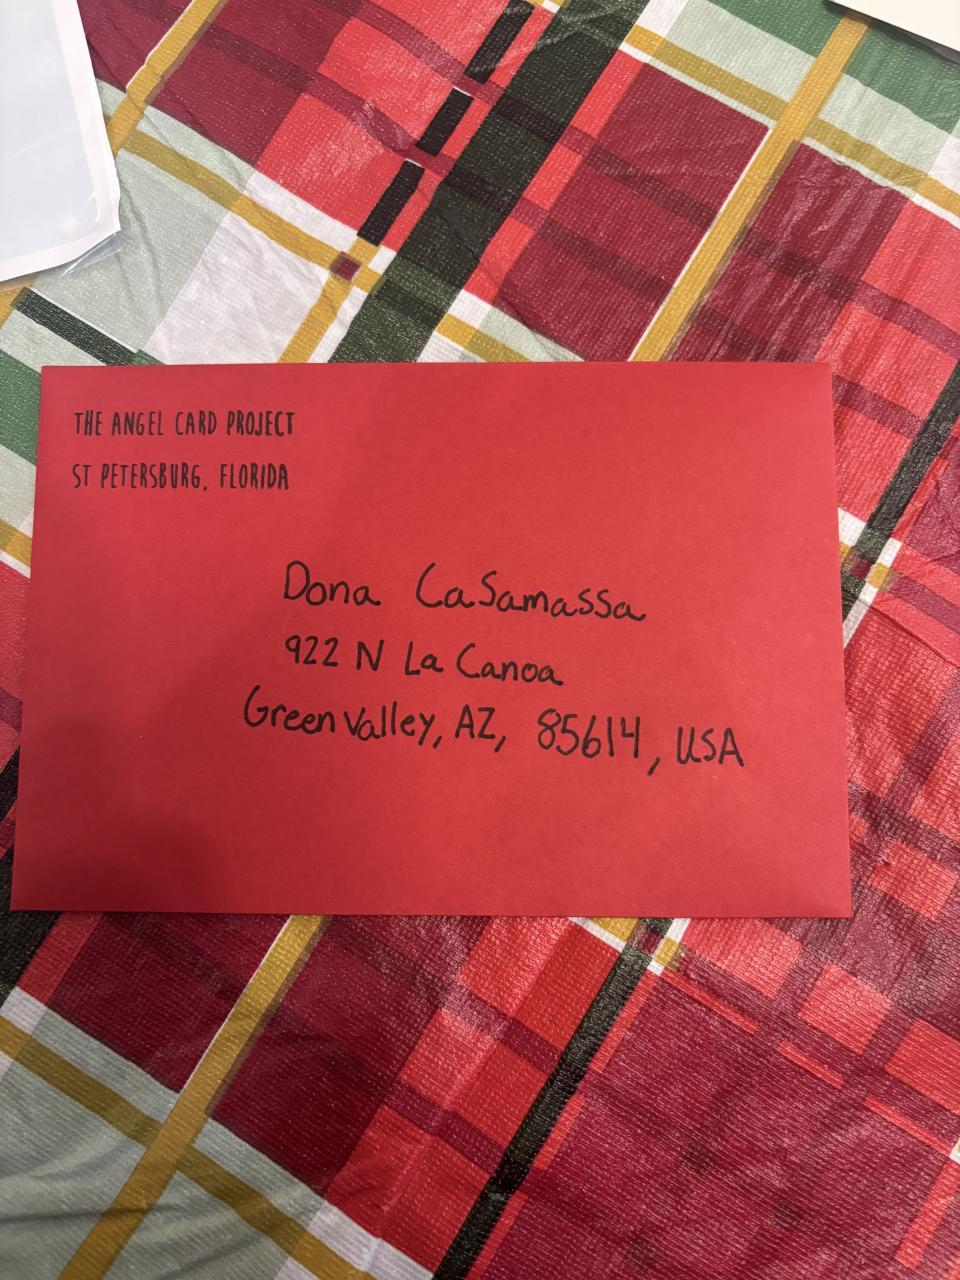 THE ANGEL CARD PROJECT
ST PETERSBURG, FLORIDA
Dona CaSamassa
922 N La Canoa
Green Valley, AZ, 85614, USA